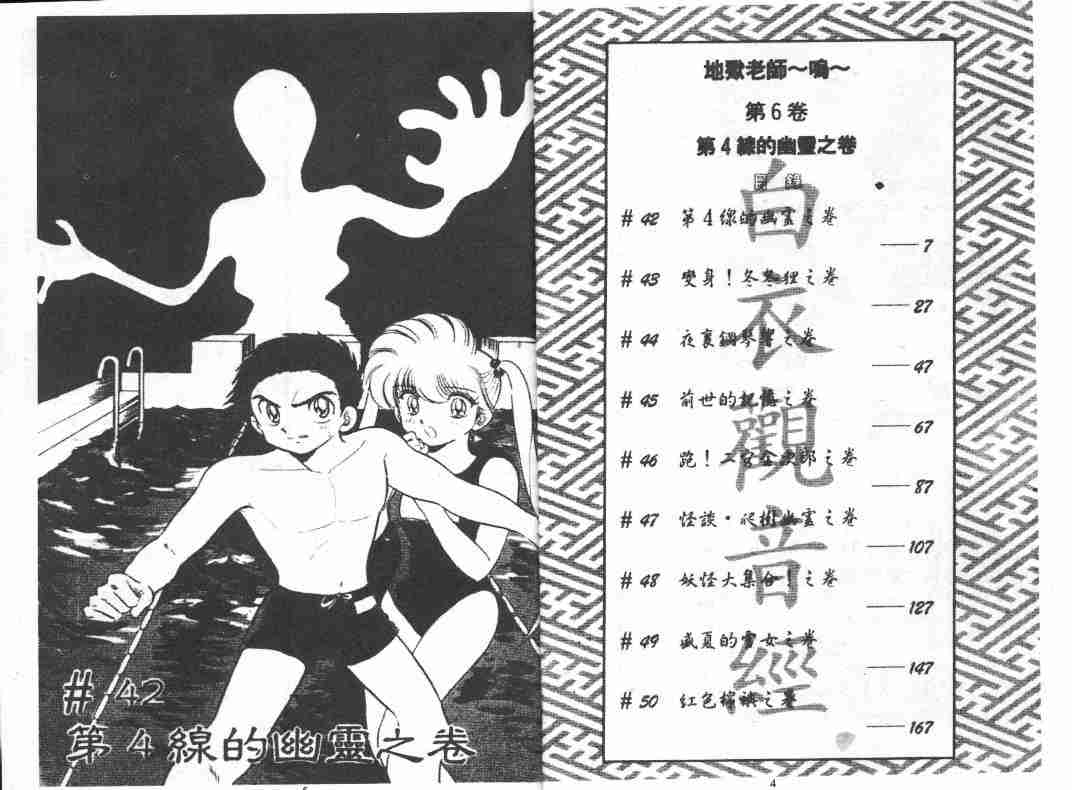 地獄老師～鳴～
第6卷
第4線的幽靈之卷
目錄
#42 第4線的幽靈之卷
7
#43 變身!冬冬狸之卷
27
#44 夜裏鋼琴響之卷
47
#45 前世的記憶之卷
67
#46 跑!二宮金次郎之卷
87
#47 怪談・爬樹幽靈之卷
107
#48 妖怪大集合!之卷
127
#49 盛夏的雪女之卷
147
#50 紅色棉襖之卷
167
白衣觀音經
4
#42
第4線的幽靈之卷